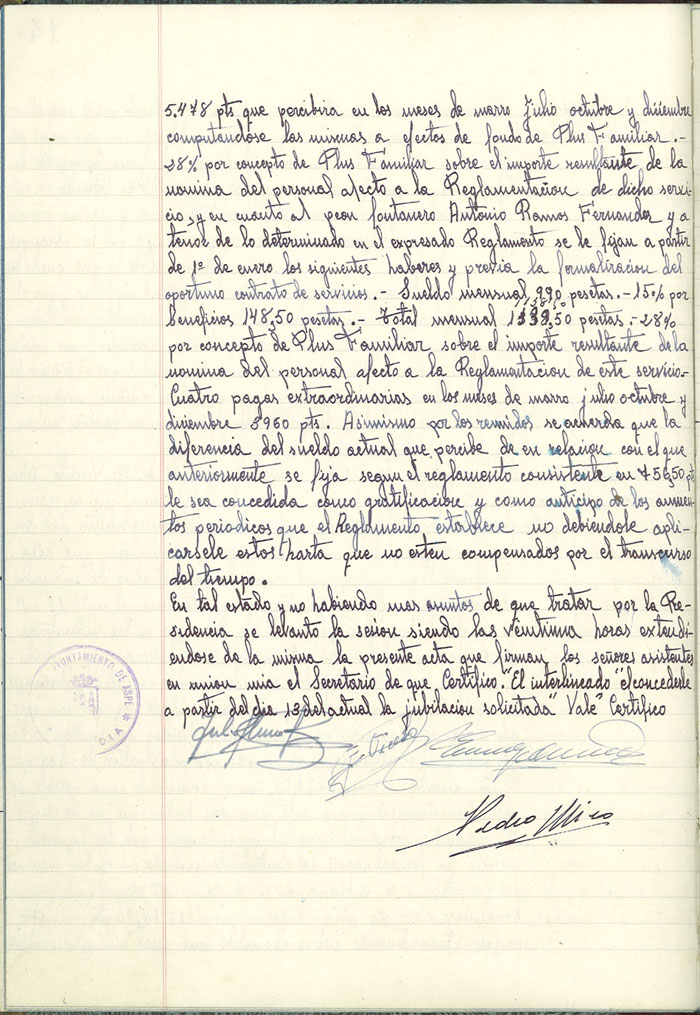 5.478 pts que percibira en los meses de marzo julio octubre y diciembre
computandose las mismas a efectos de fondo de Plus Familiar.-
-28% por concepto de Plus Familiar sobre el importe resultante de la
nomina del personal afecto a la Reglamentacion de dicho servi-
cio, y en cuanto al peon fontanero Antonio Ramos Fernandez y a
tenor de lo determinado en el expresado Reglamento se le fijan a partir
de 1º de enero los siguientes haberes y previa la formalizacion del
oportuno contrato de servicios.- Sueldo mensual 990 pesetas.- 15% por
beneficios 148,50 pesetas.- Total mensual pesetas.- 28%
por concepto de Plus Familiar sobre el importe resultante de la
nomina del personal afecto a la Reglamentacion de este servicio-
Cuatro pagas extraordinarias en los meses de marzo julio octubre y
diciembre 3960 pts. Asimismo por los reunidos se acuerda que la
diferencia del sueldo actual que percibe de en relacion con el que
anteriormente se fija segun el reglamento consistente en 756,50 pts
le sea concedida como gratificacion y como anticipo de los aumen-
tos periodicos que el Reglamento establece no debiendole apli-
carsele estos harta que no esten compensados por el transcurso
del tiempo.
En tal estado y no habiendo mas asuntos de que tratar por la Pre-
sidencia se levanto la sesion siendo las veintiuna horas extendi-
endose de la misma la presente acta que firman los señores asistentes
en union mia el Secretario de que Certifico. "El interlineado "el concederle
a partir del dia 13 del actual la jubilacion solicitada" Vale" Certifico
AYUNTAMIENTO DE ASPE
Pedro Mico